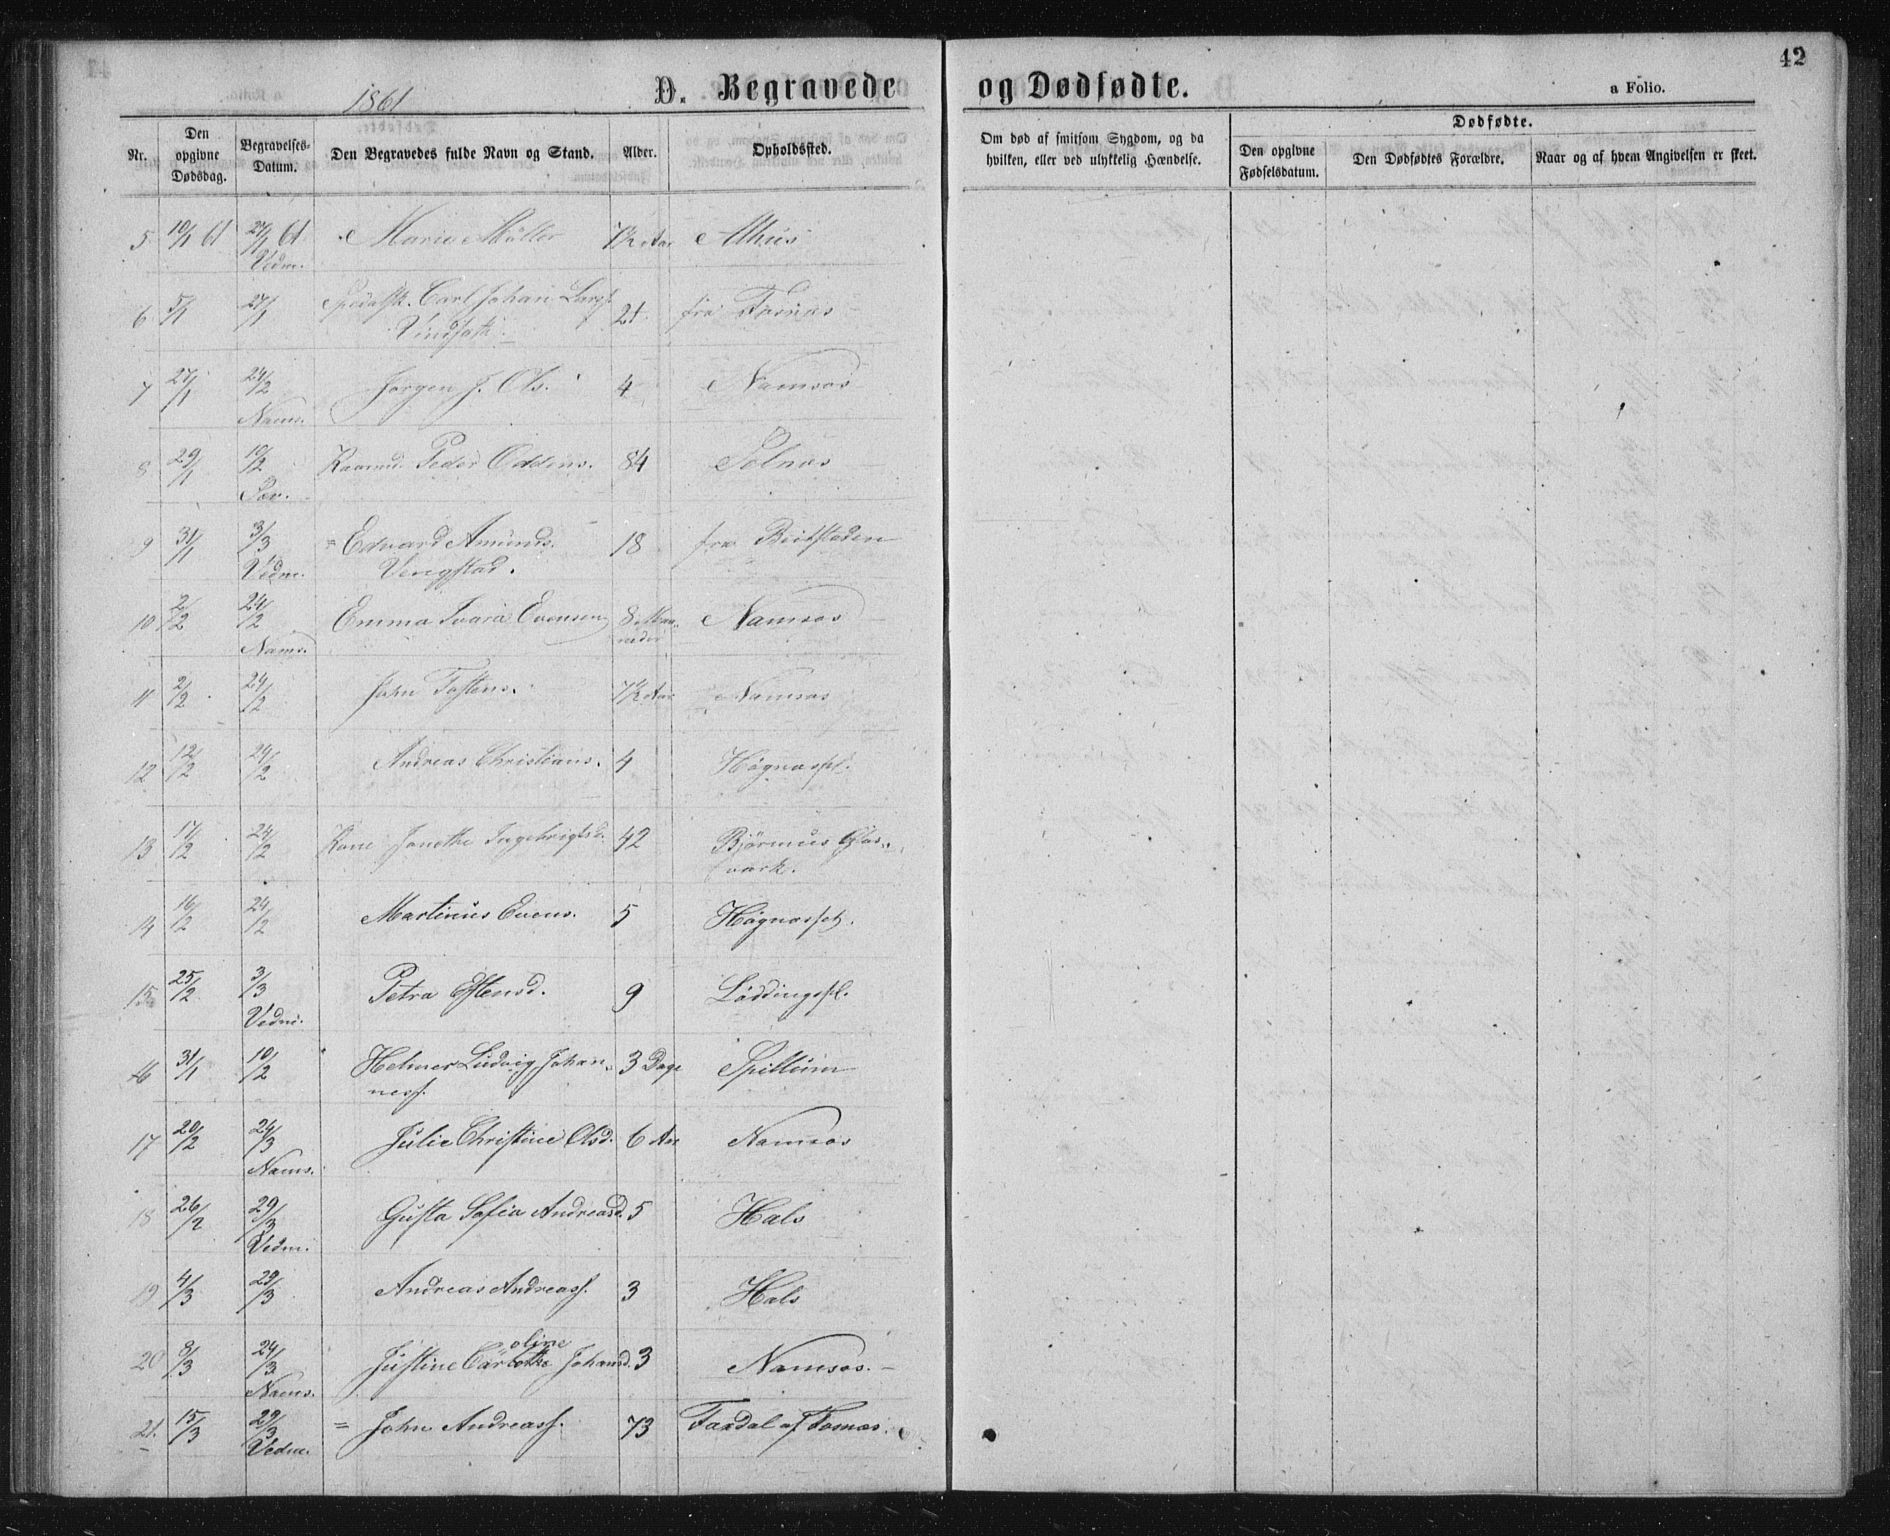 42
1861
D. Begravede og Dødfødte.
a Folio.
Nr. Den opgivne Dødsdag. Begravelses-Datum. Den Begravedes fulde Navn og Stand. Alder. Opholdssted. Om død af smitsom Sygdom, og da hvilken, eller ved ulykkelig Hændelse. Dødfødte. Den opgivne Fødselsdatum. Den Dødfødtes Forældre. Naar og af hvem Angivelsen er skeet.
5 10/1 61 27/1 61 Marie Møller 7½ Aar Ahus
Vedm.
6 5/1 27/1 Spedalsk. Carl Johan Larss. 21 fra Fosnæs
7 27/1 24/2 Jørgen J. Ols. 4 Namsos
Nams.
8 29/1 10/2 Kaarmd. Peder Oddens. 84 Tolnæs
Sæv.
9 31/1 3/3 = Edvard Amunds. 18 fra Beitstaden
Vedm. Vengstad.
10 2/2 24/2 Emma Evensen 8 Maa- Namsos
Nams. neder
11 2/2 24/2 John Tostens. 7½ Aar Namsos
12 12/2 24/2 Andreas Christians. 4 Høgnæspl.
13 17/2 24/2 Kone Janethe Ingebrigtsd. 42 Bjørums Glas-
værk.
14 16/2 24/2 Martinus Evens. 5 Høgnæsset.
15 25/2 3/3 Petra Estensd. 9 Løddingspl.
Vedm.
16 31/1 10/2 Helmer Ludvig Johan- 3 Dage Spillum
ness.
17 20/2 24/3 Julie Christine Olsd. 6 Aar Namsos
Nams.
18 26/2 29/3 Gusta Sofia Andreasd. 5 Hals
Vedm.
19 4/3 29/3 Andreas Andreass. 3 Hals
oline
20 8/3 24/3 Justine Carlotha Johansd. 3 Namsos. -
Nams.
21. 15/3 29/3 = John Andreass. 73 Faxdal af Fosnæs.
Vedm.